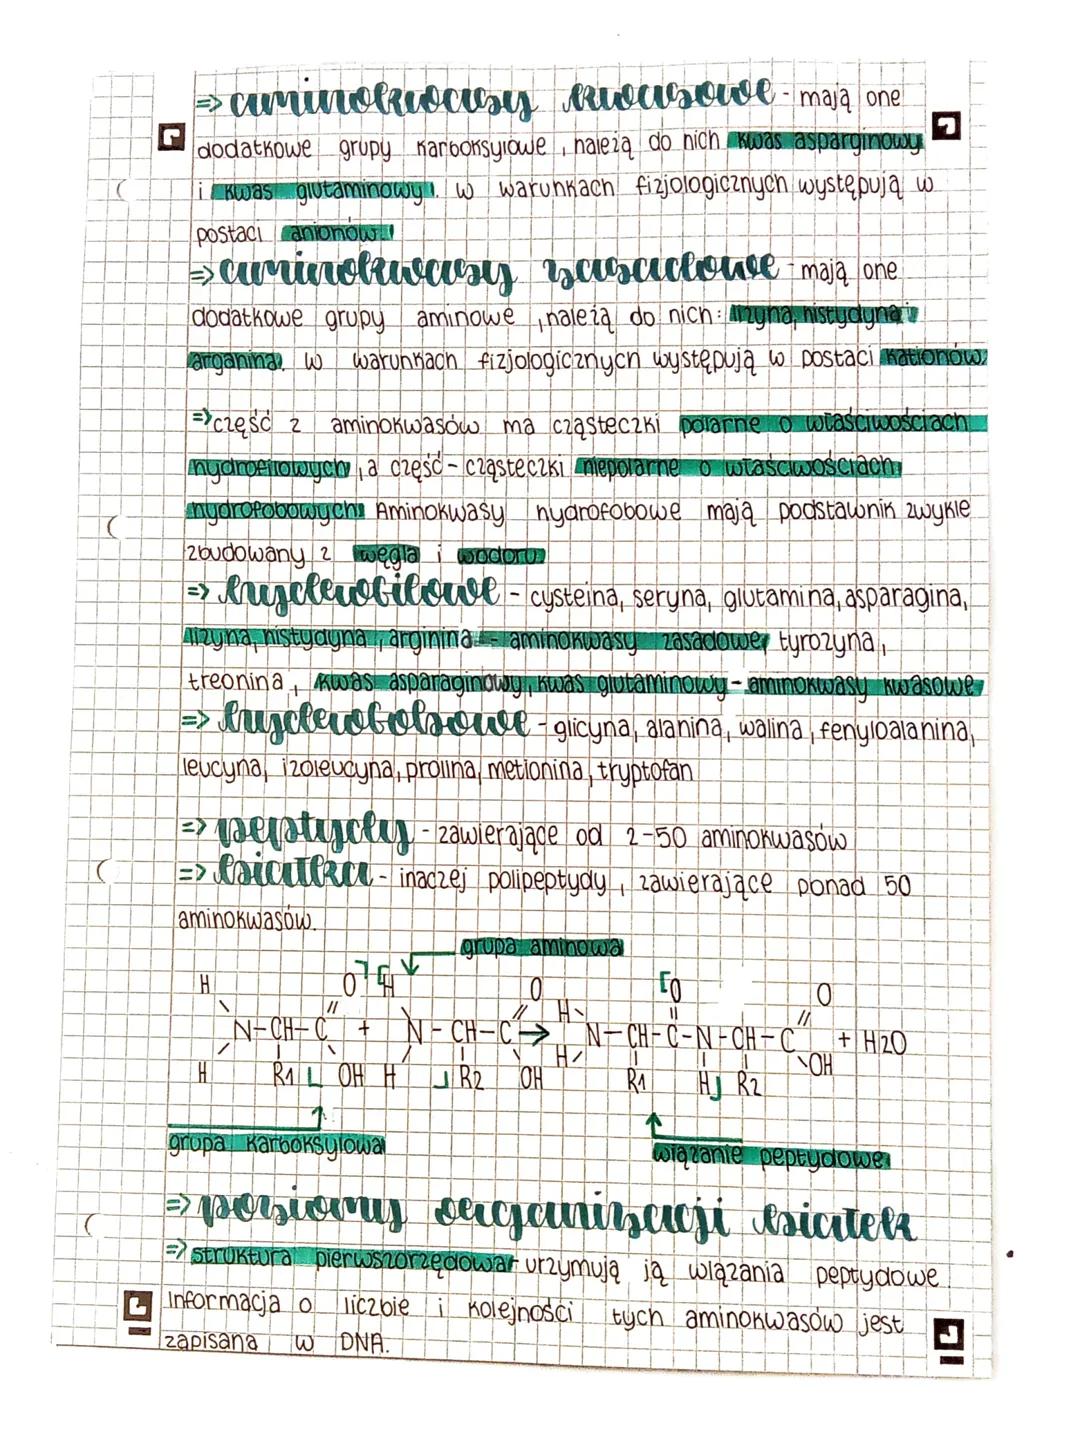 => aminokwasy kwasowe - mają one
dodatkowe grupy karboksylowe, należą do nich kwas asparginowy
i kwas glutaminowy. w warunkach fizjologicznych występują w
postaci anionów.
=> aminokwasy zasadowe - mają one
dodatkowe grupy aminowe, należą do nich: lizyna, histydyna i
arganina. w warunkach fizjologicznych występują w postaci kationów.
=> część z aminokwasów ma cząsteczki polarne o właściwościach
hydrofilowych, a część - cząsteczki niepolarne o właściwościach
hydrofobowych. Aminokwasy hydrofobowe mają podstawnik zwykle
zbudowany z węgla i wodoru.
=> hydrofilowe - cysteina, seryna, glutamina, asparagina,
lizyna, histydyna, arginina - aminokwasy zasadowe, tyrozyna,
treonina, kwas asparaginowy, kwas glutaminowy - aminokwasy kwasowe,
=> hydrofobowe - glicyna, alanina, walina, fenyloalanina,
leucyna, izoleucyna, prolina, metionina, tryptofan
=> peptydy - zawierające od 2-50 aminokwasów
=> białka - inaczej polipeptydy, zawierające ponad 50
aminokwasów.
grupa aminowa
H O H O O O
H
N-CH-C + N-CH-C → N-CH-C-N-CH-C + H2O
H OH
H R1 OH H R2 OH R1 H R2
grupa karboksylowa
wiązanie peptydowe
=> poziomy organizacji białek
=> struktura pierwszorzędowa - utrzymują ją wiązania peptydowe.
Informacja o liczbie i kolejności tych aminokwasów jest
zapisana w DNA.